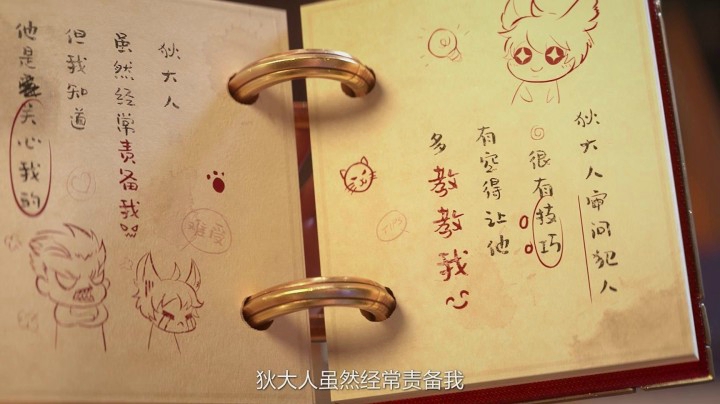 狄大人
虽然经常责备我
但我知道
他是关心我的
难受
狄大人审问犯人
很有技巧
有空得让他
多教教我
狄大人虽然经常责备我